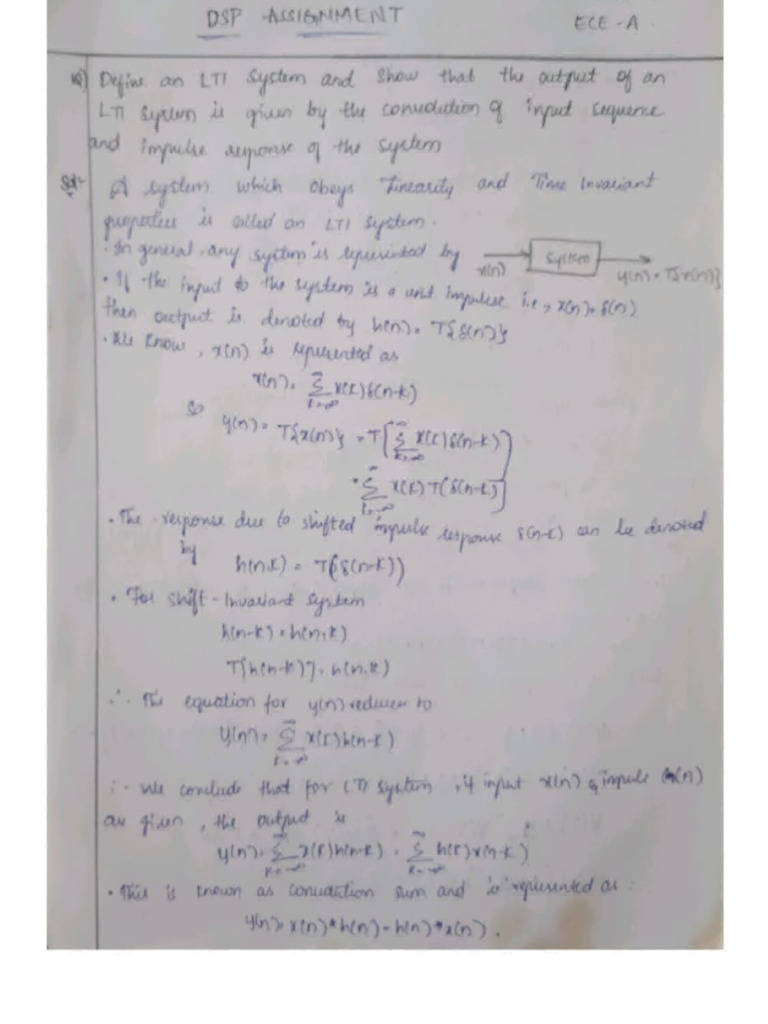 DSP ASSIGNMENT
ECE-A
1a) Define an LTI System and Show that the output of an
LTI System is given by the convolution of input sequence
and impulse response of the system
Sol:- A system which obeys Linearity and Time Invariant
properties is called an LTI System.
· In general, any system is represented by
x(n)
System
y(n) = T{x(n)}
· If the input to the system is a unit impulse i.e, x(n) = δ(n)
then output is denoted by h(n) = T{δ(n)}
· We know, x(n) is represented as
x(n) = ∞Σk=-∞ x(k)δ(n-k)
so
y(n) = T{x(n)} = T[∞Σk=-∞ x(k)δ(n-k)]
= ∞Σk=-∞ x(k)T[δ(n-k)]
· The response due to shifted impulse response δ(n-k) can be denoted
by h(n,k) = T(δ(n-k))
· For shift-Invariant system
h(n-k) = h(n,k)
T[h(n-k)] = h(n,k)
∴ The equation for y(n) reduces to
y(n) = ∞Σk=-∞ x(k)h(n-k)
∴ We conclude that for LTI system, if input x(n) & impulse h(n)
are given, the output is
y(n) = ∞Σk=-∞ x(k)h(n-k) = ∞Σk=-∞ h(k)x(n-k)
· This is known as convolution sum and is represented as:
y(n) = x(n)*h(n) = h(n)*x(n).